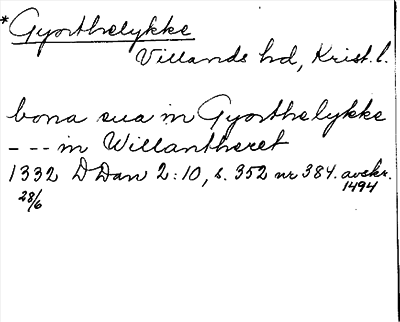 *Gyorthelykke
Villands hd, Krist. l.
bona sua in Gyorthelykke
--- in Willantheret
1332 DDan 2:10, s. 352 nr 384. avskr.
28/6 1494